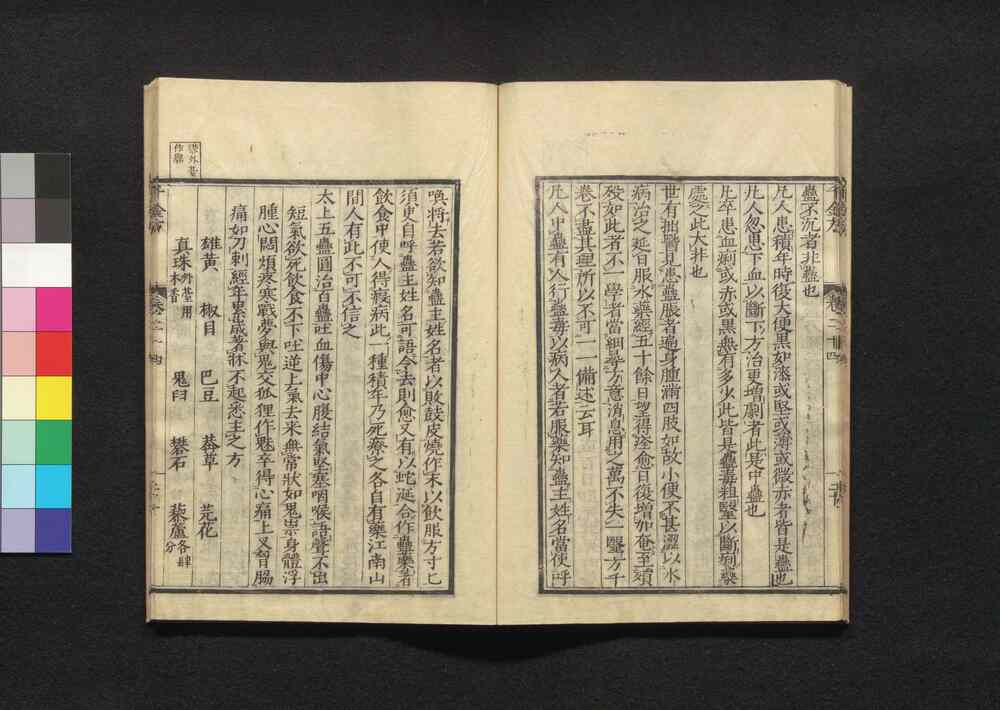 蠱不沉者非蠱也
凡人患積年時復大便黑如漆或堅或薄或微赤者皆是蠱也
凡人忽患下血以斷下方治更增劇者此是中蠱也
凡卒患血痢或赤或黑無有多少此皆是蠱毒粗醫以斷痢藥
處之此大非也
世有拙醫見患蠱脹者遍身腫滿四肢如故小便不甚澀以水
病治之延日服水藥經五十餘日望得痊愈日復增加奄至殞
歿如此者不一學者當細尋方意消息用之萬不失一醫方千
卷不盡其理所以不可一一備述云耳
凡人中蠱有人行蠱毒以病人者若服藥知蠱主姓名當使呼
喚將去若欲知蠱主姓名者以敗鼓皮燒作末以飲服方寸匕
須臾自呼蠱主姓名可語令去則愈又有以蛇涎合作蠱藥著
飲食中使人得瘕病此一種積年乃死療之各自有藥江南山
間人有此不可不信之
太上五蠱圓治百蠱吐血傷中心腹結氣堅塞咽喉語聲不出
短氣欲死飲食不下吐逆上氣去來無常狀如鬼祟身體浮
腫心悶煩疼寒戰夢與鬼交狐狸作魅卒得心痛上叉胷脇
痛如刀刺經年累歲著牀不起悉主之方
雄黃 椒目 巴豆 莽草 芫花
真珠外臺用木香 鬼臼 礬石 藜蘆各肆分
千金方
卷二十四